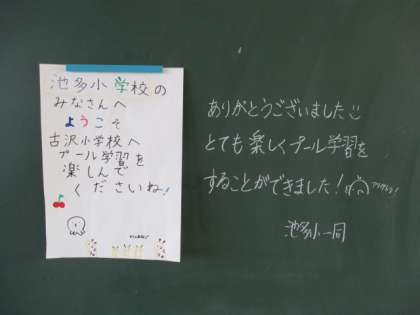 池多小学校の
みなさんへ
ようこそ
古沢小学校へ
プール学習を
楽しんで
くださいね!
ありがとうございました
とても楽しくプール学習を
することができました!
池多小一同